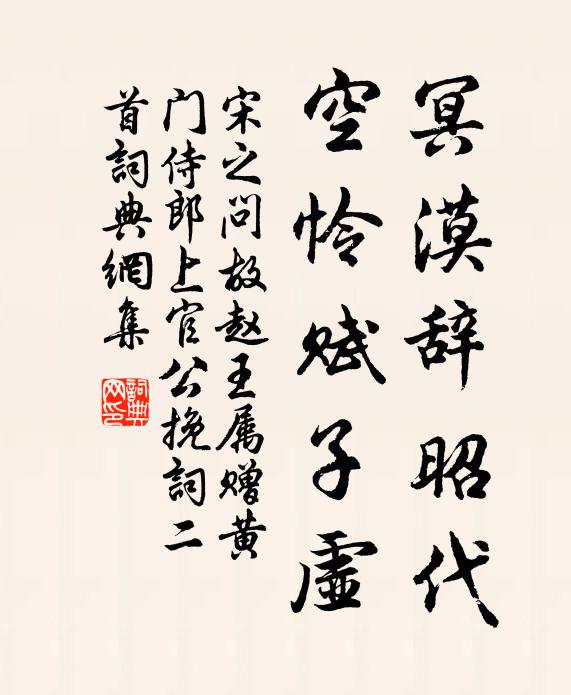 冥漠辞昭代
空怜赋子虚
宋之问故赵王属赠黄
门侍郎上官公挽詞二
首詞典網集
詞典
网印